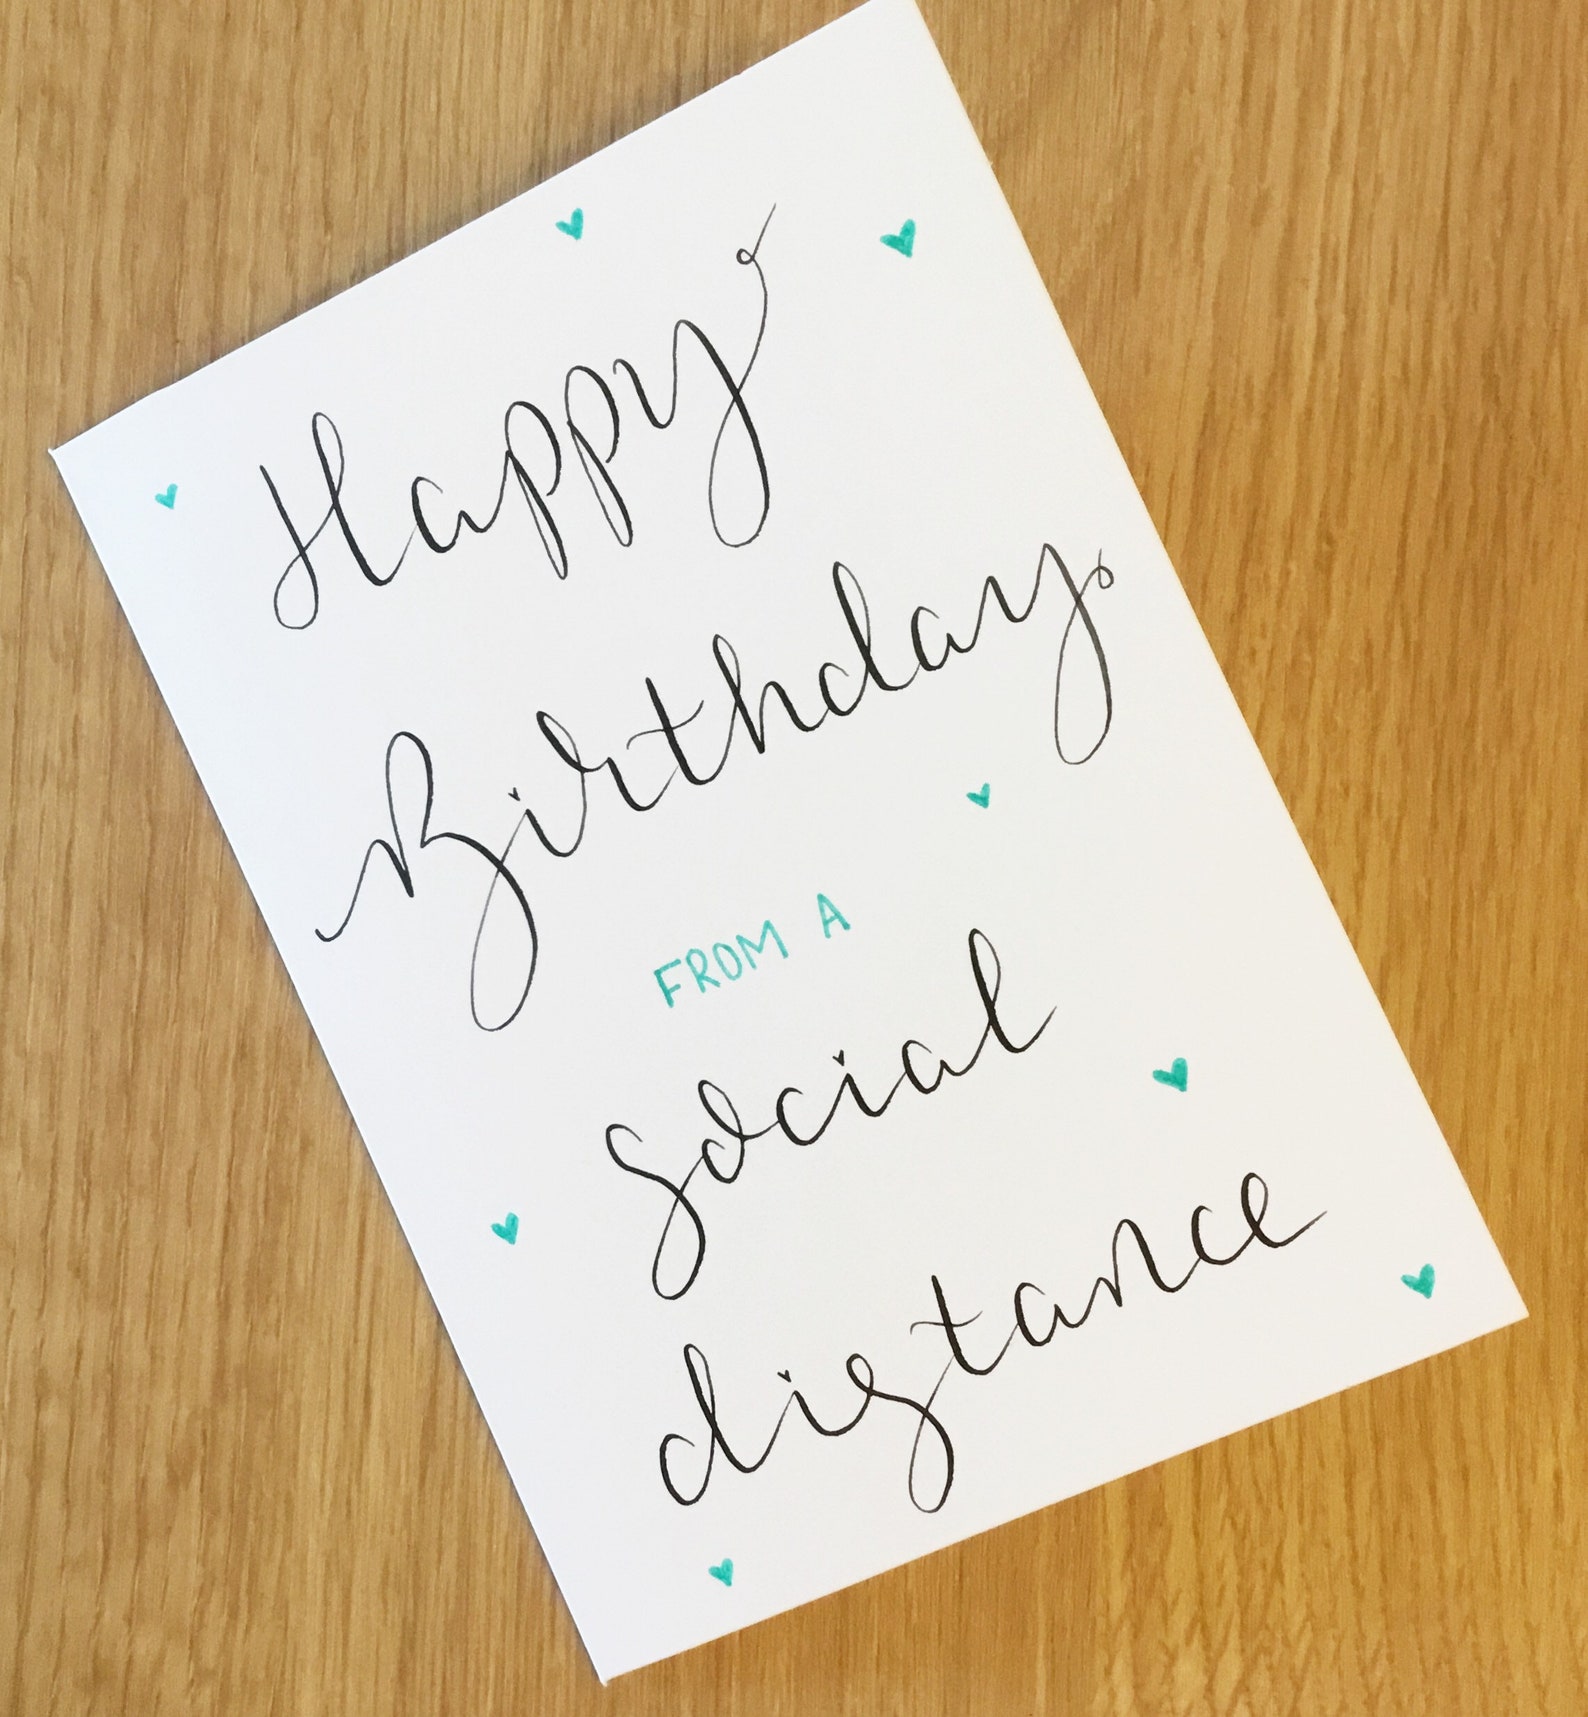 Happy
Birthday
FROM A
social
distance